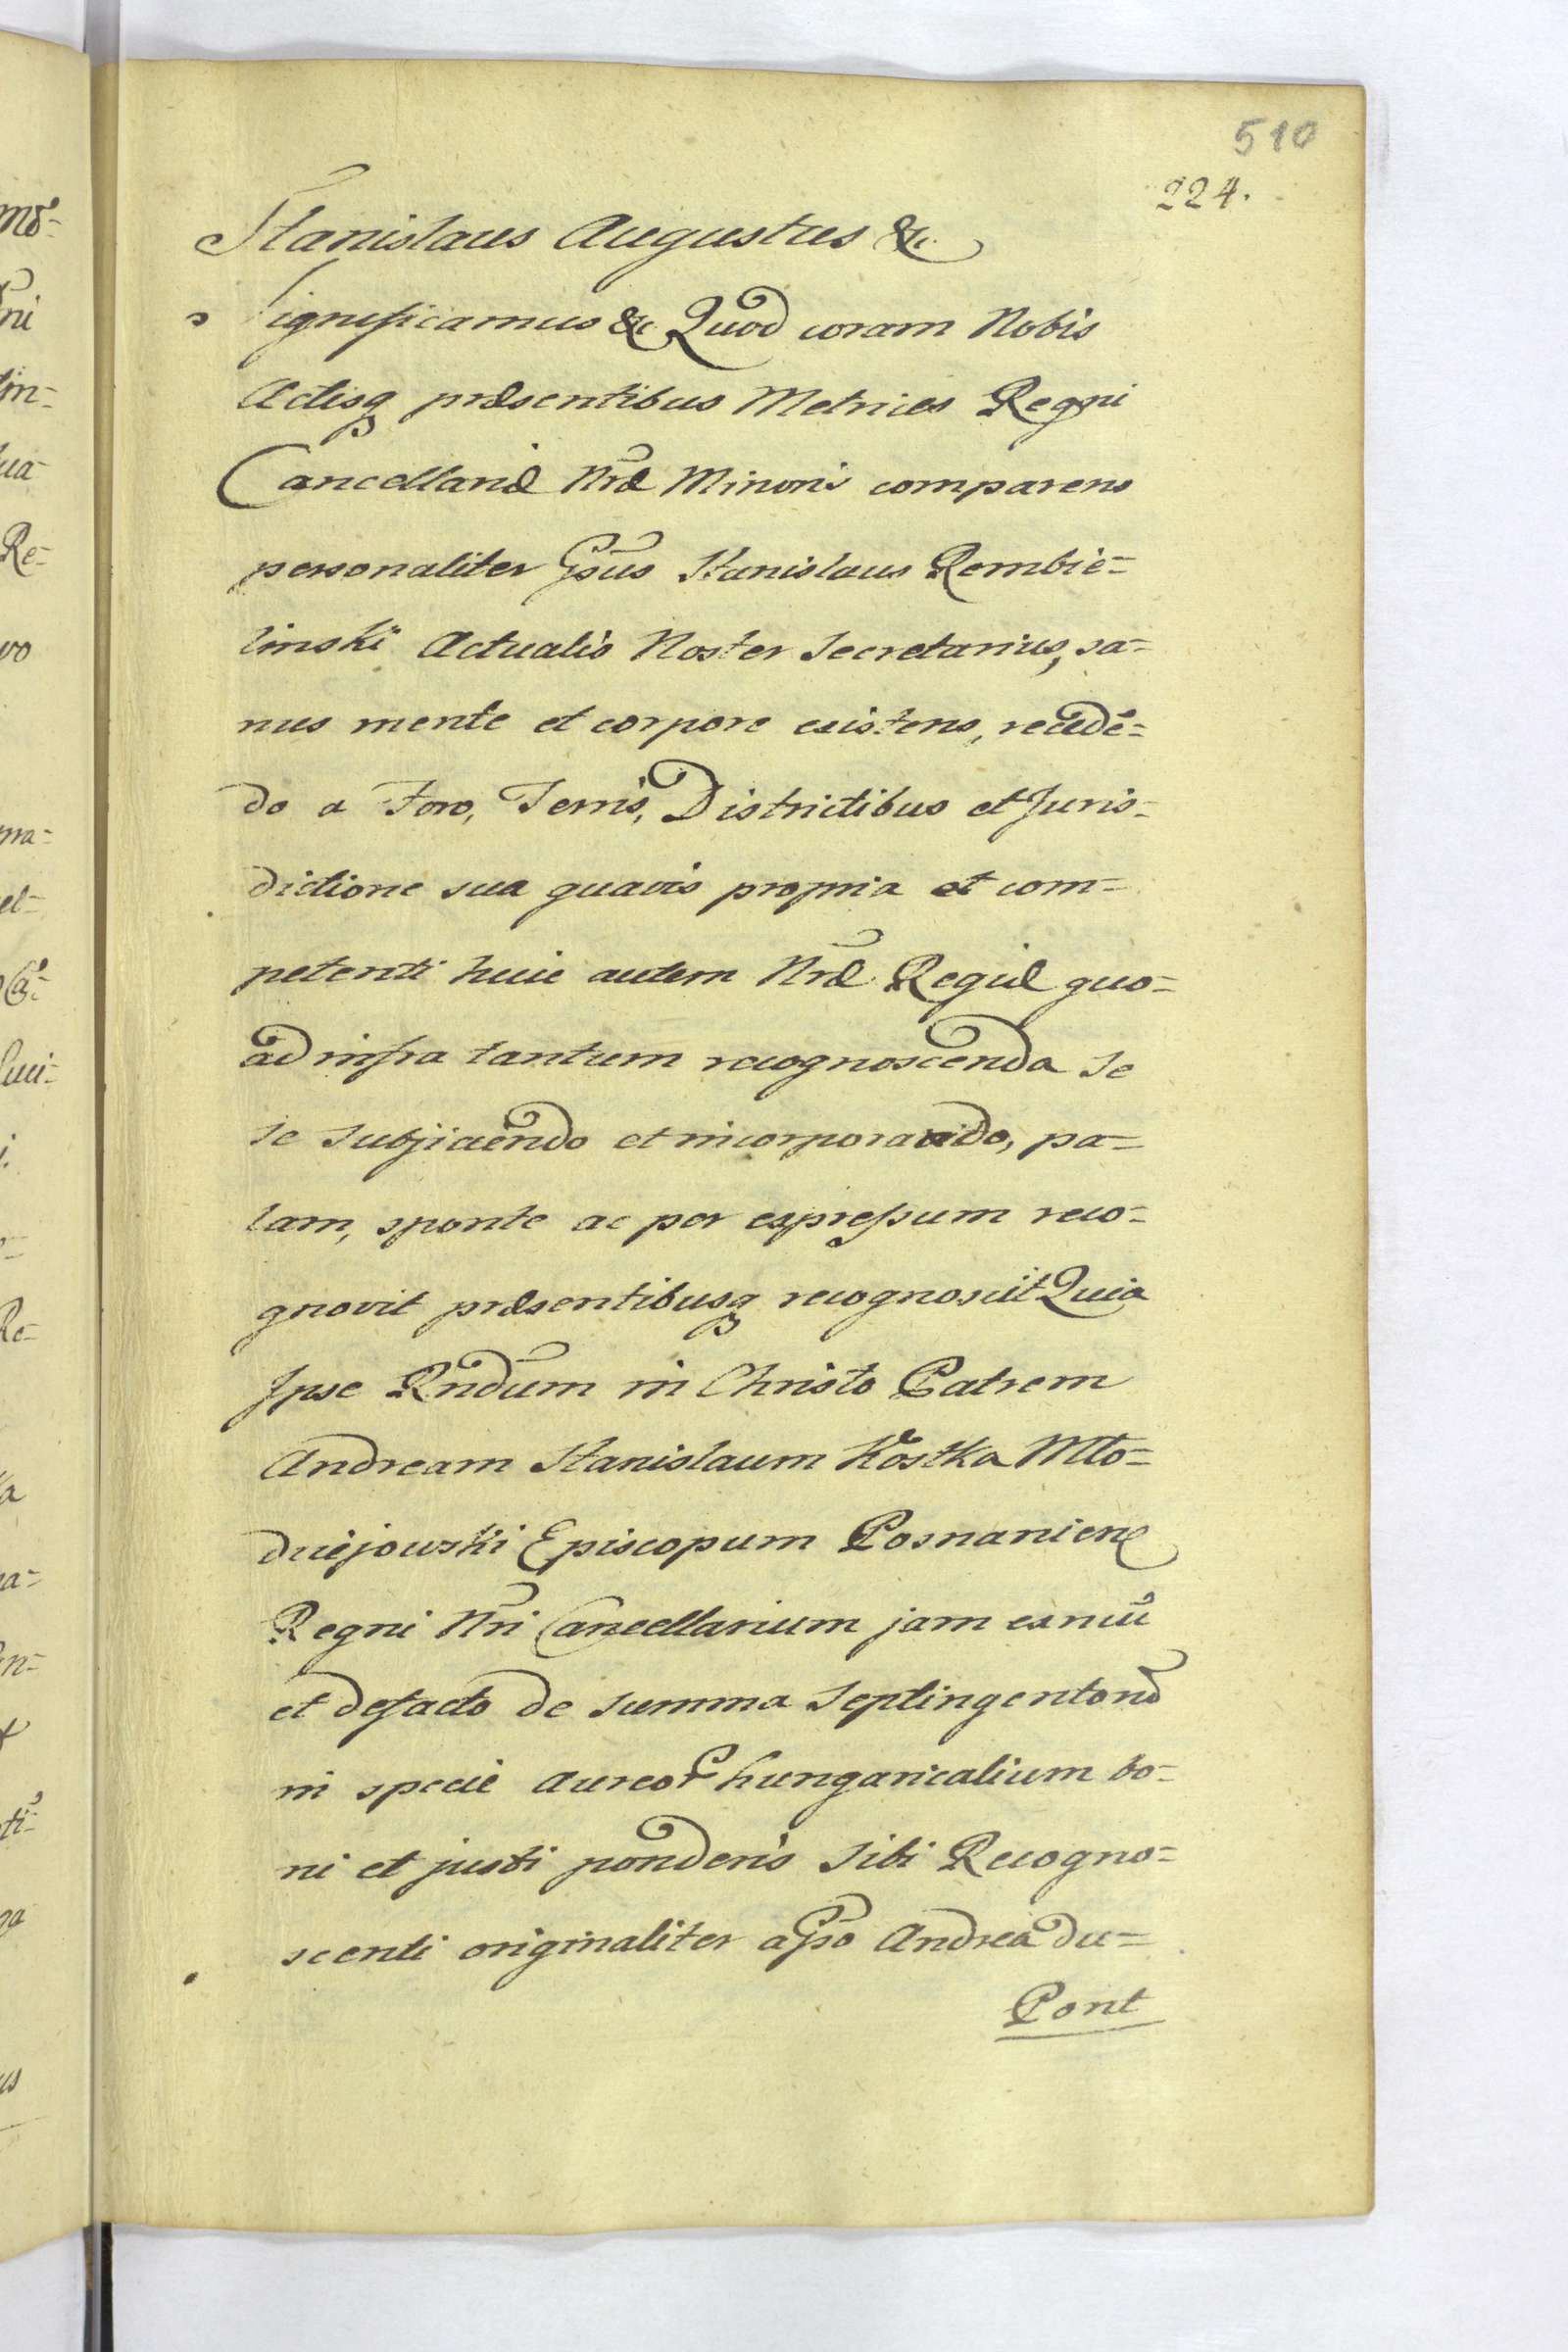 510
224.
Stanislaus Augustus &c
Significamus &c Quod coram Nobis
Actisq praesentibus Metrices Regni
Cancellariae Nrae Minoris comparens
personaliter Gsus Stanislaus Rembie=
linski Actualis Noster Secretarius, sa=
nus mente et corpore existens, recedē=
do a Foro, Terris, Districtibus et Juris=
dictione sua quavis propria et com=
petenti huic autem Nrae Regiae quo=
ad infra tantum recognoscenda Se
se Subjiciendo et incorporando, pa=
lam, sponte ac per expressum reco=
gnovit praesentibusq recognoscit Quia
Ipse Rndum in Christo Patrem
Andream Stanislaum Kostka Mło=
dziejowski Episcopum Posnanien
Regni Nri Cancellarium jam ex nuc
et defacto de Summa Septingentorū
in specie Aureor hungaricalium bo=
ni et justi ponderis Sibi Recogno=
scenti originaliter a Gso Andrea du=
Pont
mō=
ni
tin=
ua=
Re=
vo
ma=
el=
uci=
Re=
a
a=
in=
ti=
ga
us